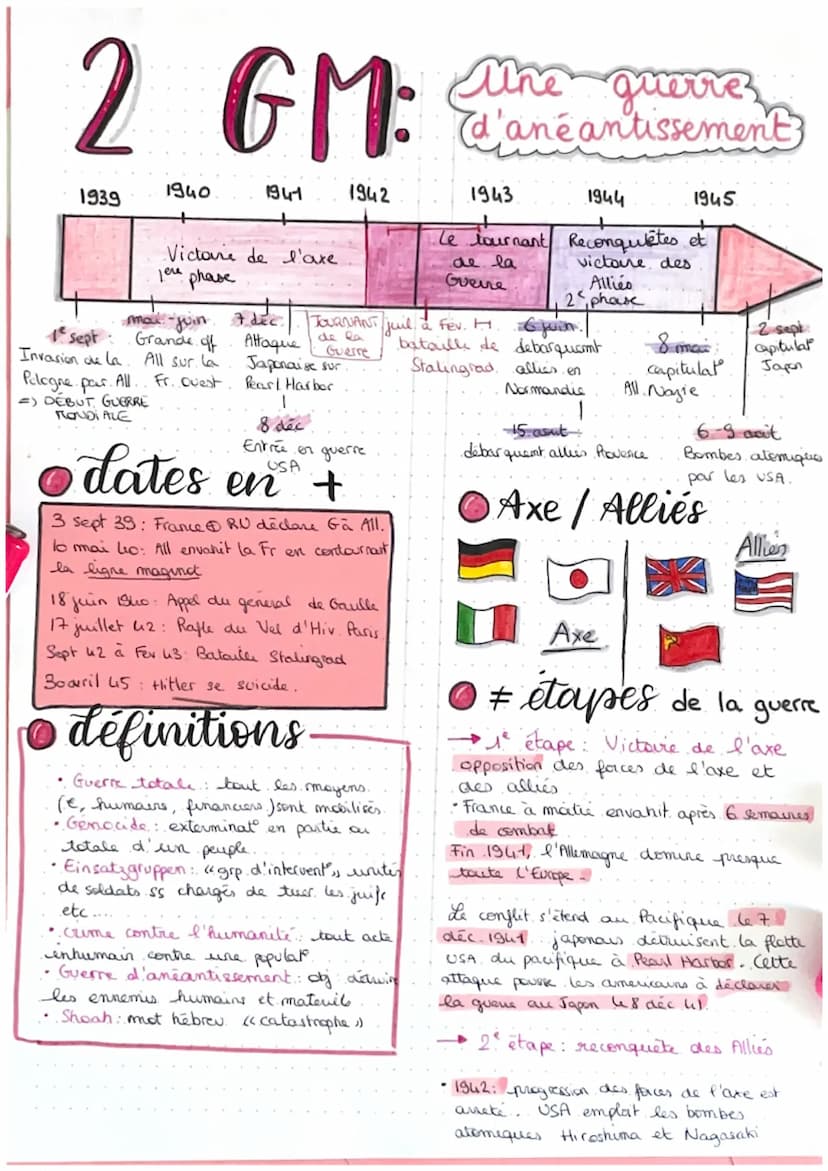 2 GM:
Une guerre
d'anéantissement
1939 1940 1941 1942 1943 1944 1945
Victoire de l'axe
1ere phase
Le tournant
de la
Guerre
Reconquêtes et
victoire des
Alliés
2e phase
1e sept :
Invasion de la
Pologne par All.
=) DÉBUT GUERRE
MONDIALE
mai-juin
Grande off
All sur la
Fr. Ouest
7 déc
Attaque
Japonaise sur
Pearl Harbor
8 déc
Entrée en guerre
USA
TOURNANT
de la
Guerre
juil à Fev.
bataille de
Stalingrad
6 juin
débarquemt
alliés en
Normandie
15 aout
débarquemt alliés Provence
8 mai
capitulat°
All. Nazie
2 sept
capitulat°
Japon
6-9 août
Bombes atomiques
par les USA.
dates en +
3 sept 39 : France ⊕ RU déclare G à All.
10 mai 40 : All envahit la Fr en contournant
la ligne maginot
18 juin 1940 : Appel du général de Gaulle
17 juillet 42 : Rafle du Vel d'Hiv. Paris
Sept 42 à Fev 43 : Bataille Stalingrad
30 avril 45 : Hitler se suicide.
Axe / Alliés
Alliés
Axe
définitions
• Guerre totale : tout les moyens
(€, humains, financiers) sont mobilisés
• Génocide : exterminat° en partie ou
totale d'un peuple
• Einsatzgruppen : "grp d'intervent°" unités
de soldats ss chargés de tuer les juifs
etc ....
• crime contre l'humanité : tout acte
inhumain contre une populat°
• Guerre d'anéantissement : obj détruire
les ennemis humains et matériels
• Shoah : mot hébreu "catastrophe"
≠ étapes de la guerre
→ 1e étape : Victoire de l'axe
opposition des forces de l'axe et
des alliés
• France à moitié envahit après 6 semaines
de combat
Fin 1941, l'Allemagne domine presque
toute l'Europe.
Le conflit s'étend au Pacifique le 7
déc. 1941 japonais détruisent la flotte
USA du pacifique à Pearl Harbor. Cette
attaque pousse les américains à déclarer
la guerre au Japon le 8 déc 41.
→ 2e étape : reconquête des Alliés
• 1942 : progression des forces de l'axe est
arreté. USA emploit les bombes
atomiques Hiroshima et Nagasaki